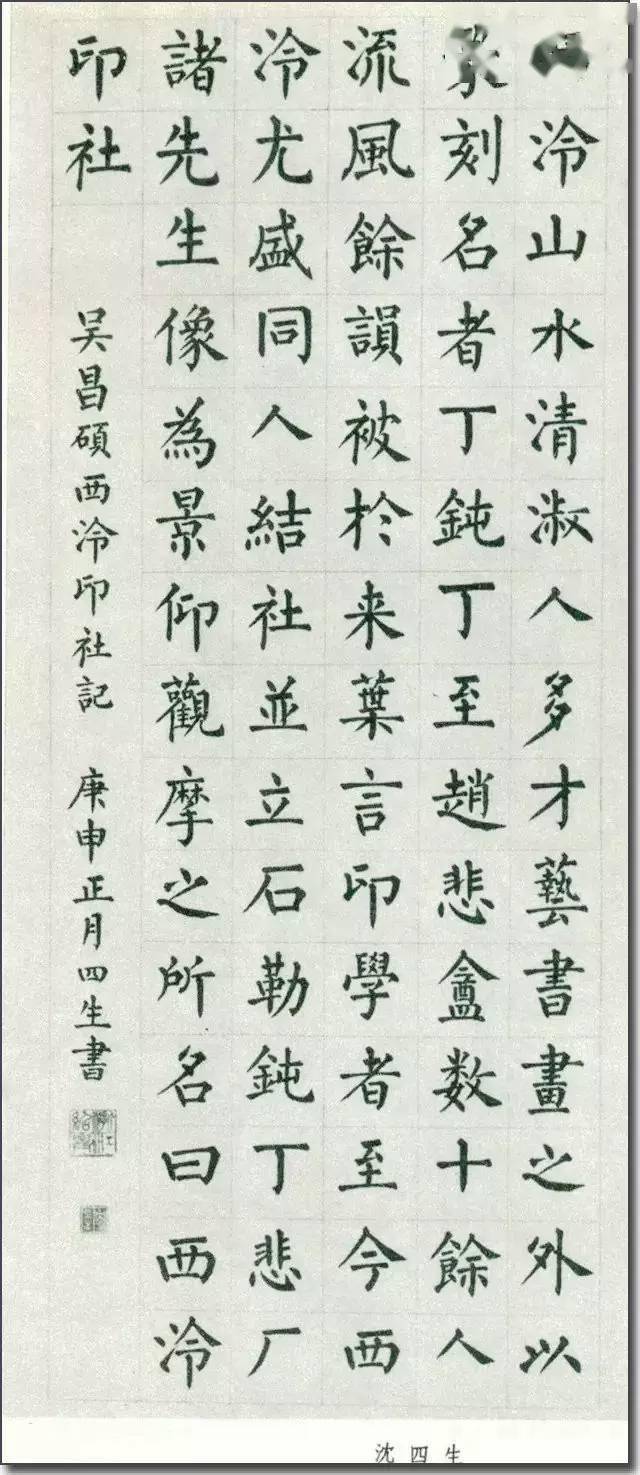 泠山水清淑人多才藝書畫之外以
篆刻名者丁鈍丁至趙悲盦数十餘人
流風餘韻被於来葉言印學者至今西
泠尤盛同人結社並立石勒鈍丁悲厂
諸先生像為景仰觀摩之所名曰西泠
印社
吴昌碩西泠印社記 庚申正月四生書
沈四生